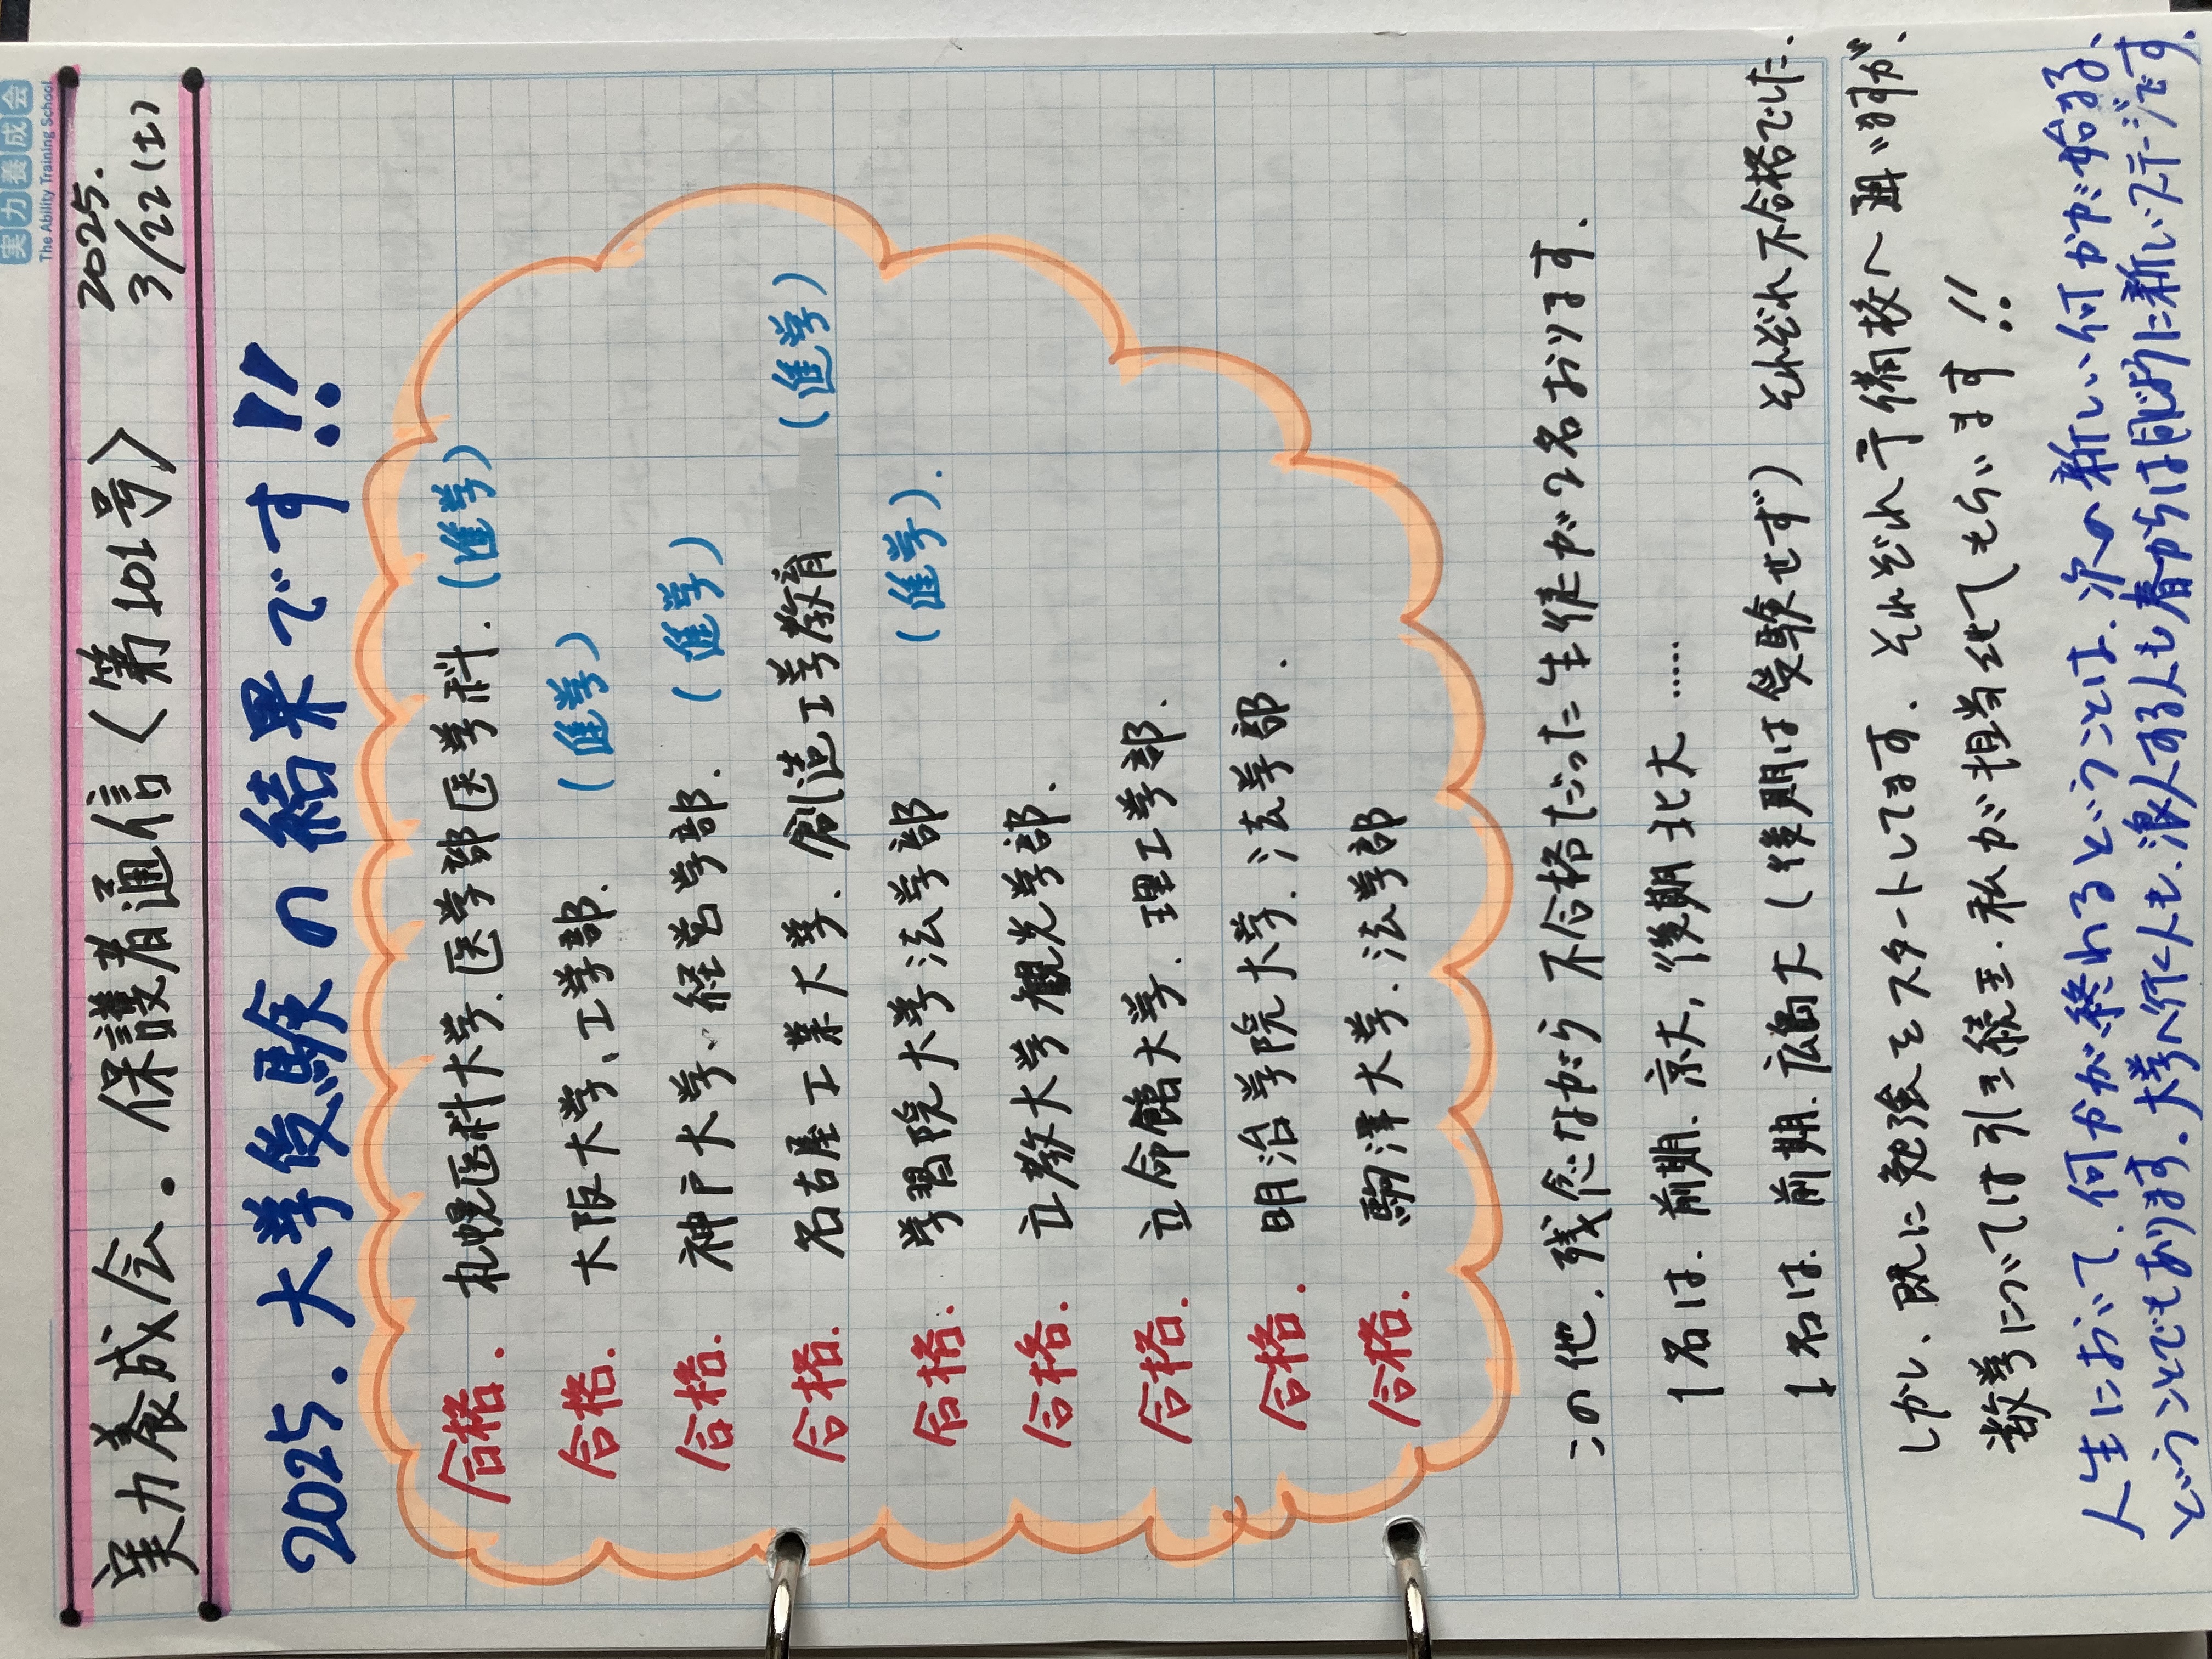 実力養成会
The Ability Training School
実力養成会.保護者通信〈第101号〉
2025.
3/22(土)
2025.大学受験の結果です!!
合格. 札幌医科大学.医学部医学科.(進学)
合格. 大阪大学、工学部. (進学)
合格. 神戸大学、経営学部. (進学)
合格. 名古屋工業大学、創造工学教育 (進学)
合格. 学習院大学法学部 (進学).
合格. 立教大学観光学部.
合格. 立命館大学.理工学部.
合格. 明治学院大学.法学部.
合格. 駒澤大学.法学部
この他.残念ながら不合格だった生徒が2名おります.
1名は.前期.京大,後期北大……
1名は.前期.広島大(後期は受験せず)それぞれ不合格でした.
しかし、既に勉強をスタートしてます.それぞれ予備校へ通いますが、
数学については引き続き.私が担当させてもらいます!!
人生において、何かが終わるということは、次の新しい何かが始まる、
ということでもあります.大学へ行く人も、浪人する人も春からは同じように新しいステージです.